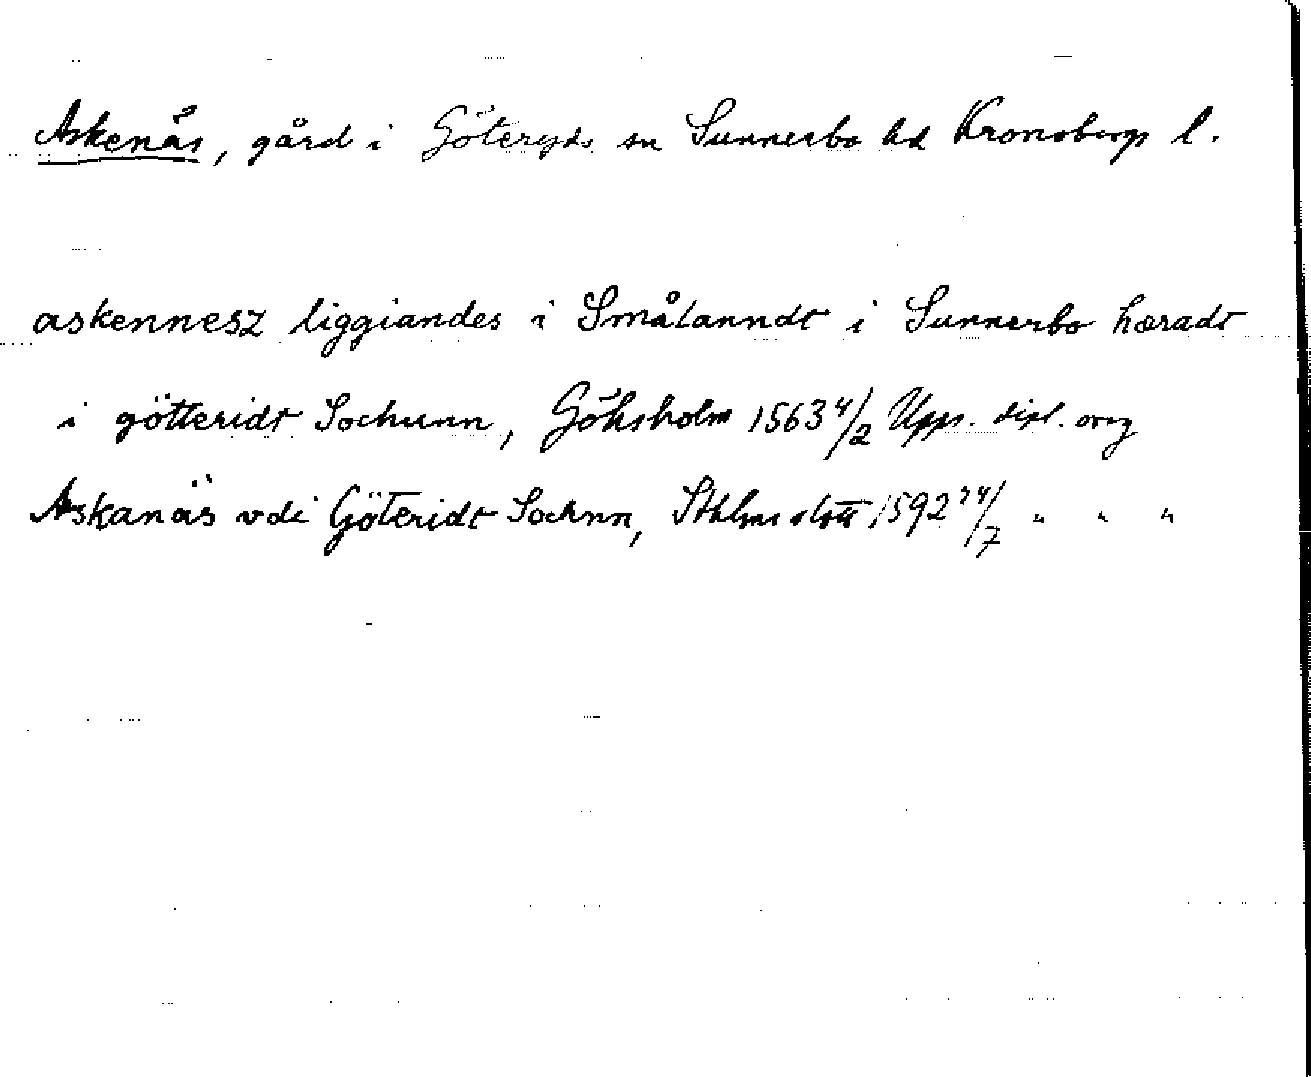 Askenäs, gård i Göteryds sn Sunnerbo hd Kronobergs l.
askennesz liggiandes i Smålanndt i Sunnerbo hæradt
i götteridt Sochunn, Göksholm 1563 4/2 Upps. dipl. orig
Askanäs vdi Göteridt Sochnn, Sthlms slott 1592 24/7 " " "